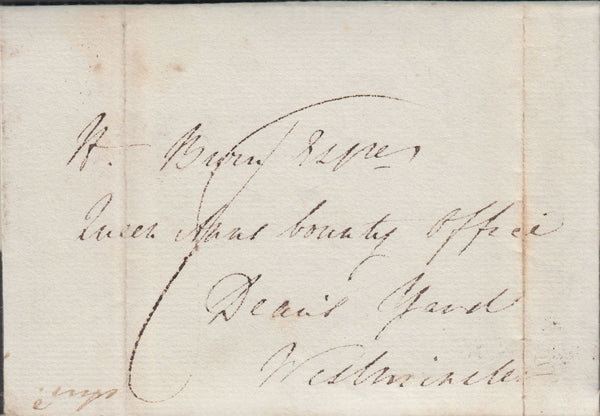 Esqre
Queen Anns bounty Office
Deans Yard
Westminster